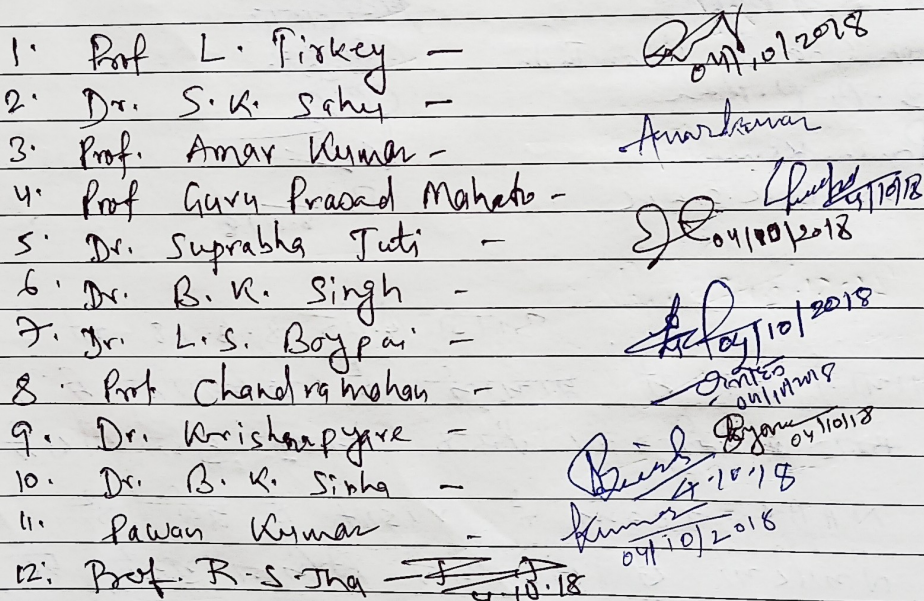 1. Prof L. Tirkey - 04/10/2018
2. Dr. S.K. Sahu -
3. Prof. Amar Kumar - Amarkumar
4. Prof Guru Prasad Mahato - 4/10/18
5. Dr. Suprabha Tuti - 04/10/2018
6. Dr. B.K. Singh -
7. Dr. L.S. Boypai - 04/10/2018
8. Prof Chandramohan - 04/10/2018
9. Dr. Krishnapyare - 04/10/18
10. Dr. B.K. Sinha - 4.10.18
11. Pawan Kumar - Kumar 04/10/2018
12. Prof. R-S-Jha - 4.10.18